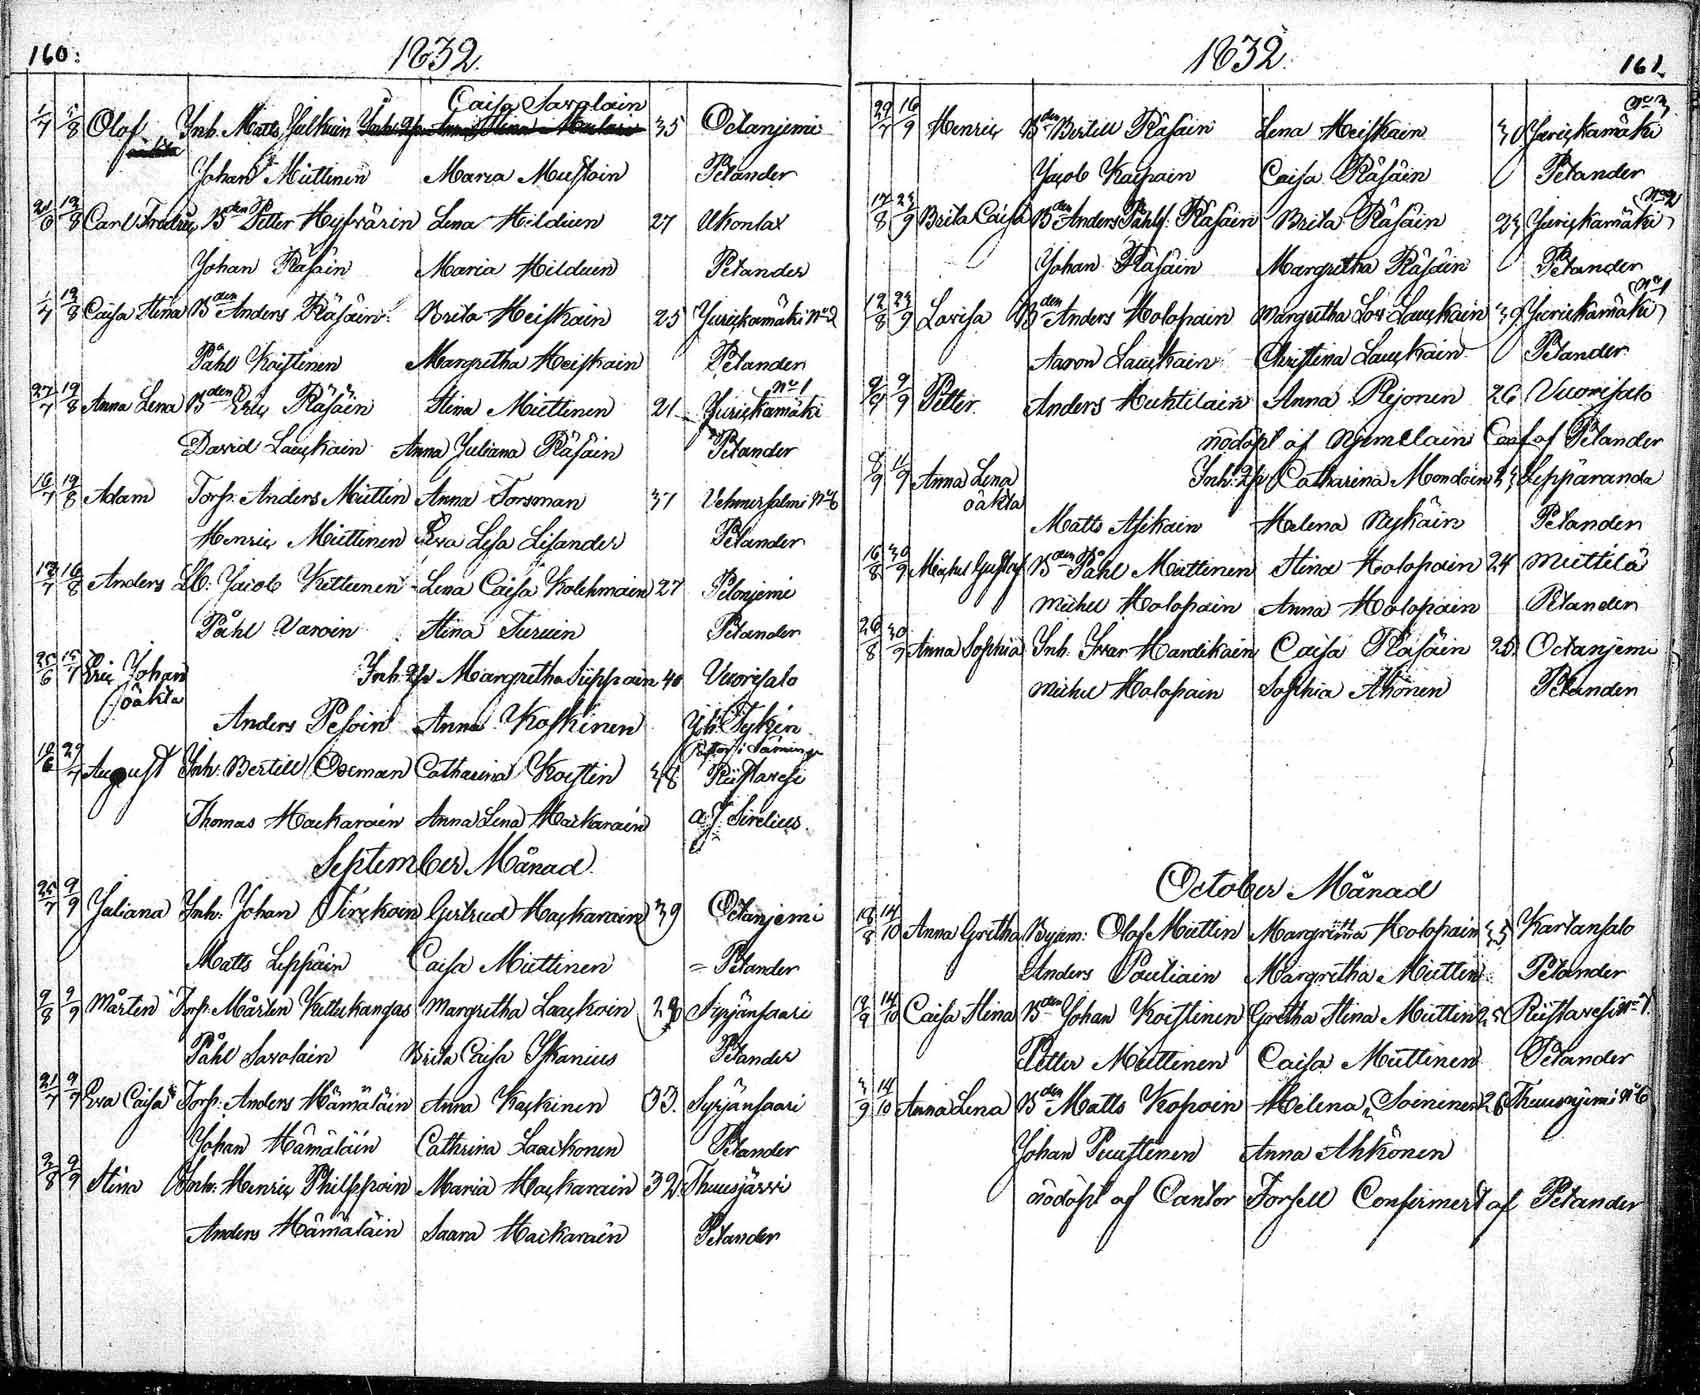 160:
1832.
Caisa Savolain
1/7 5/8 Olof Inh. Matts Julkuin 35 Octanjemi
Johan Miettinen Maria Mustoin Pelander
12/8 Carl Fredric Bden Petter Hyfvärin Lena Hilduin 27 Ukonlax
Johan Räsäin Maria Hilduin Pelander
1/7 12/8 Caisa Stina Bden Anders Räsäin Brita Heiskain 25 Jurickamäki No 2
Påhl Koistinen Margretha Heiskain Pelander
No 1
27/7 19/8 Anna Lena Bden Eric Räsäin Stina Miettinen 21 Jurickamäki
David Lauckain Anna Juliana Räsäin Pelander
16/7 19/8 Adam Torp. Anders Miettin Anna Forsman 37 Vehmersalmi No 6
Henric Miettinen Eva Lisa Lisander Pelander
16/8 Anders Jacob Kettunen Lena Caisa Kolehmain 27 Pelonjemi
Påhl Varoin Stina Turuin Pelander
Eric Johan Inh: Margretha Sirppain 40 Vuorisalo
oäkta
Anders Pesoin Anna Koskinen Joh: Tykén
29/7 August Inh. Bertill Oxman Catharina Koistin 38 Riistavesi
Thomas Hackarain Anna Lena Hackarain A. J. Sirelius.
September Månad.
25/7 9/9 Juliana Inh: Johan Tirckoin Gertrud Hackarain 39 Octanjemi
Matts Leppäin Caisa Miettinen = Pelander
9/8 9/9 Mårten Torp. Mårten Kettukangas Margretha Lauckain Syrjänsaari
Påhl Savolain Brita Caisa Skanius Pelander
21/7 9/9 Eva Caisa Torp. Anders Hämäläin Anna Kackinen 33. Syrjänsaari
Johan Hämäläin Cathrina Laackonen Pelander
2/8 9/9 Stina Inh. Henric Philppoin Maria Hackarain 32 Thuusjärvi
Anders Hämäläin Saara Hackarain Pelander
1832.
161.
No 3
29/7 16/9 Henric Bden Bertill Räsäin Lena Heiskain 30 Jurickamäki
Jacob Kaipain Caisa Räsäin Pelander
No 2
17/8 23/9 Brita Caisa Bden Anders Påhls. Räsäin Brita Räsäin 23 Jurickamäki
Johan Räsäin Margretha Räsäin Pelander
No 1
12/8 23/9 Lovisa Bden Anders Holopain Margretha Lov Lauckain 39 Jurickamäki
Aaron Lauckain Christina Lauckain Pelander
9/9 Petter Anders Huhtilain Anna Rejonen 26 Vuorisalo
nödöpt af Nyman Conf af Pelander
Anna Lena Inh: Catharina Mondoin 23 Leppäranda
oäkta
Matts Asikain Helena Nykäin Pelander
16/8 30/9 Michel Gustaf Bden Påhl Miettinen Stina Holopain 24 Miettilä
Michel Holopain Anna Holopain Pelander
26/8 30/9 Anna Sophia Inh: Ivar Hardikain Caisa Räsäin 25. Octanjemi
Michel Holopain Sophia Ahonen Pelander
October Månad
18/8 14/10 Anna Gretha Byam: Olof Miettin Margretha Holopain 35 Kartansalo
Anders Pouliain Margretha Miettin Pelander
12/9 14/10 Caisa Stina Bden Johan Koistinen Gretha Stina Miettin 25 Riistavesi No 7
Petter Miettinen Caisa Miettinen Pelander
3/9 14/10 Anna Lena Bden Matts Kopoin Helena Soininen 26 Thuusnjemi No 6
Johan Puustinen Anna Ahkonen
nödöpt af Cantor Forsell Confirmert af Pelander